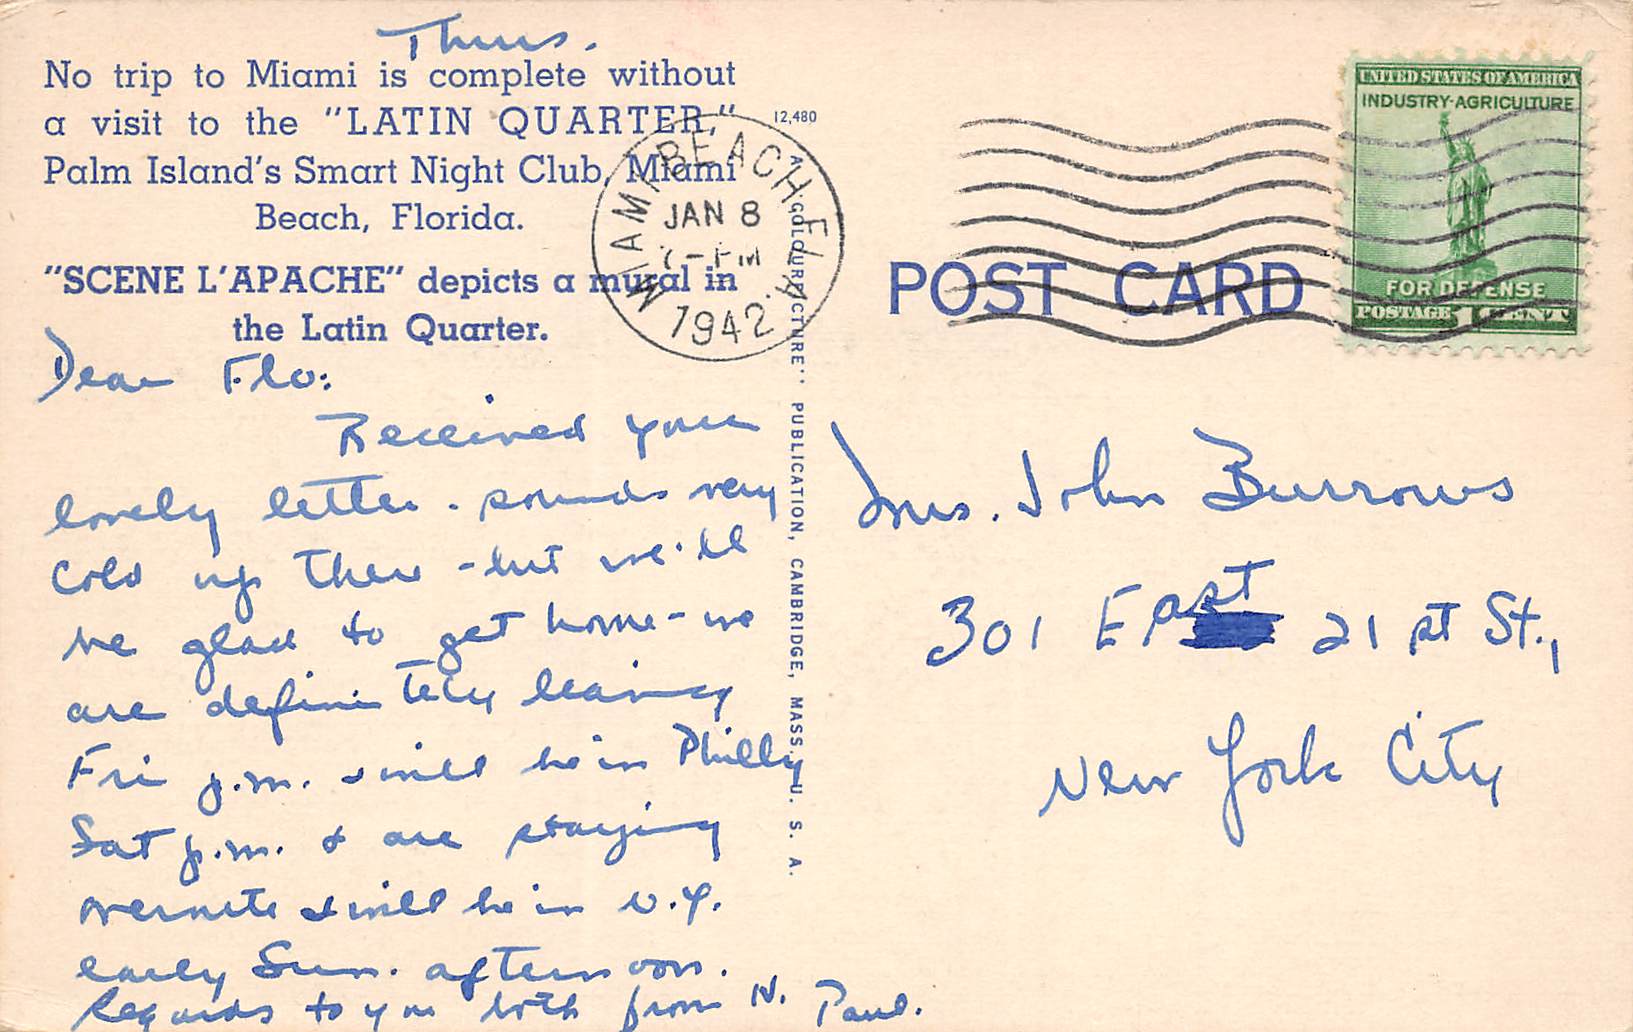 Thurs.
No trip to Miami is complete without
a visit to the "LATIN QUARTER,"
Palm Island's Smart Night Club, Miami
Beach, Florida.
"SCENE L'APACHE" depicts a mural in
the Latin Quarter.
Dear Flo:
Received your
lovely letter. sounds very
cold up there - but we'll
be glad to get home - we
are definitely leaving
Fri p.m. & will be in Philly
Sat p.m. & are staying
overnite & will be in N.Y.
early Sun. afternoon.
Regards to you both from N. Paul.
12,480
MIAMI BEACH, FLA.
JAN 8
1942
A "COLOURPICTURE" PUBLICATION, CAMBRIDGE, MASS. U. S. A.
POST CARD
UNITED STATES OF AMERICA
INDUSTRY·AGRICULTURE
FOR DEFENSE
POSTAGE 1 CENT
Mrs. John Burrows
301 East 21 st St.,
New York City